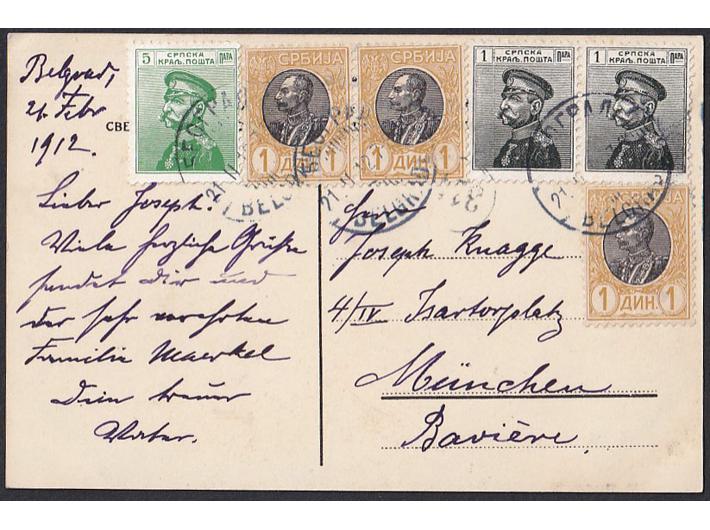 Belgrad,
21. Febr
1912.
СВЕ
Lieber Joseph!
Viele herzliche Grüße
sendet Dir und
der sehr verehrten
Familie Maerkel
Dein treuer
Vater.
5 СРПСКА ПАРА
КРАЉ. ПОШТА
СРБИЈА
1 ДИН. 1
СРБИЈА
1 ДИН. 1
1 СРПСКА ПАРА
КРАЉ. ПОШТА
1 СРПСКА ПАРА
КРАЉ. ПОШТА
СРБИЈА
1 ДИН. 1
БЕОГРАД
21. II
BELGRADE
Herrn
Joseph Knagge
4/IV Isartorplatz
München
Bavière.